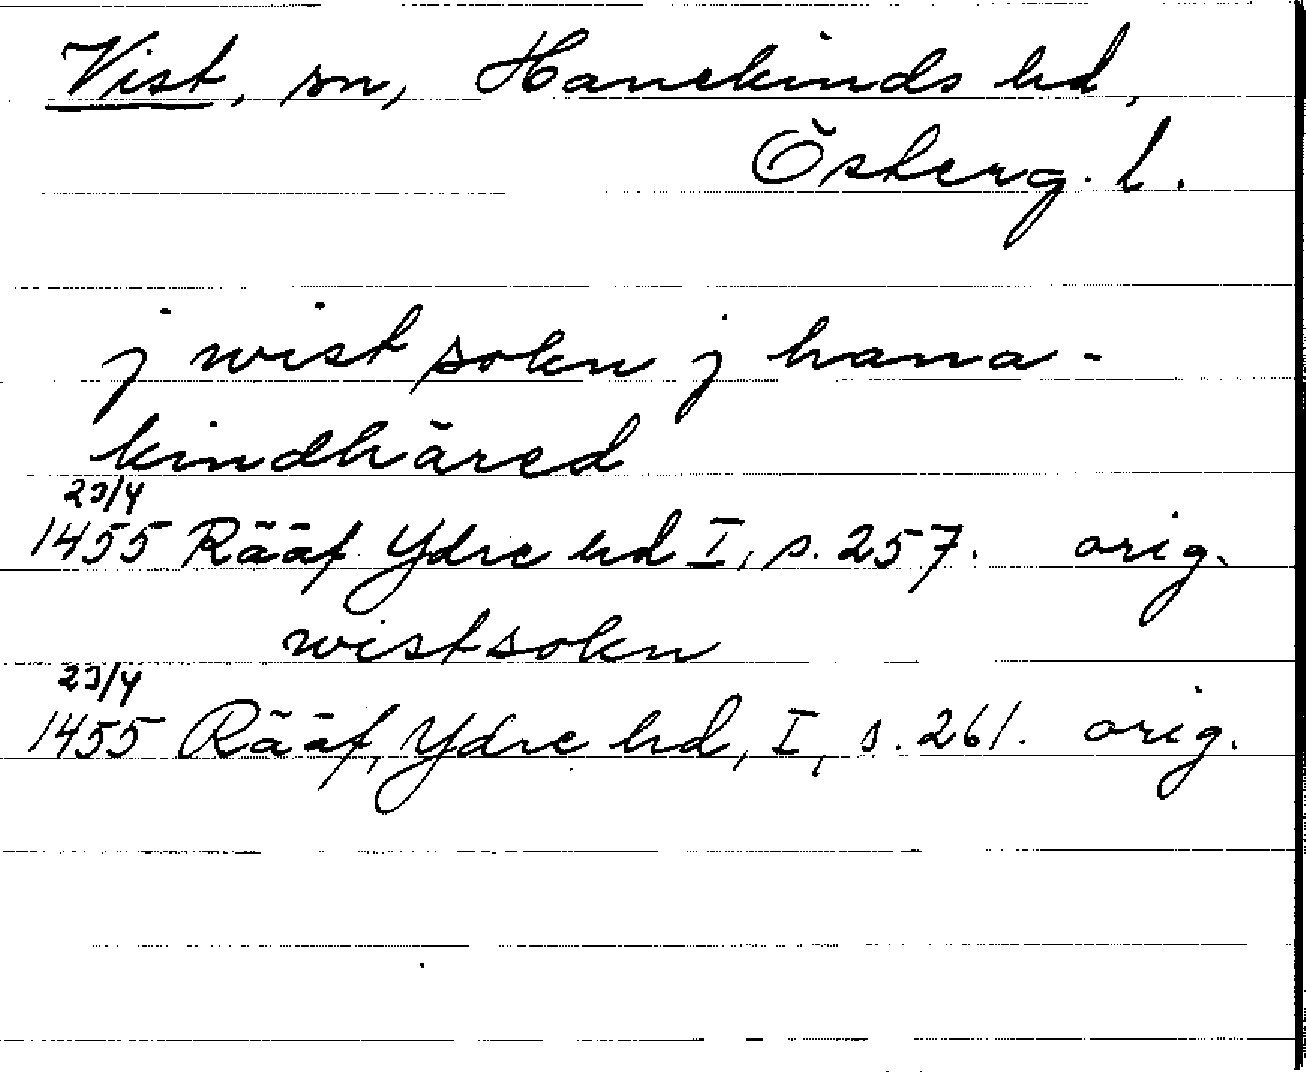 Vist, sn, Hanekinds hd,
Österg. l.
j wist sokn j hana-
kindhäred
23/4
1455 Rääf Ydre hd I, s. 257. orig.
wistsokn
23/4
1455 Rääf, Ydre hd, I, s. 261. orig.